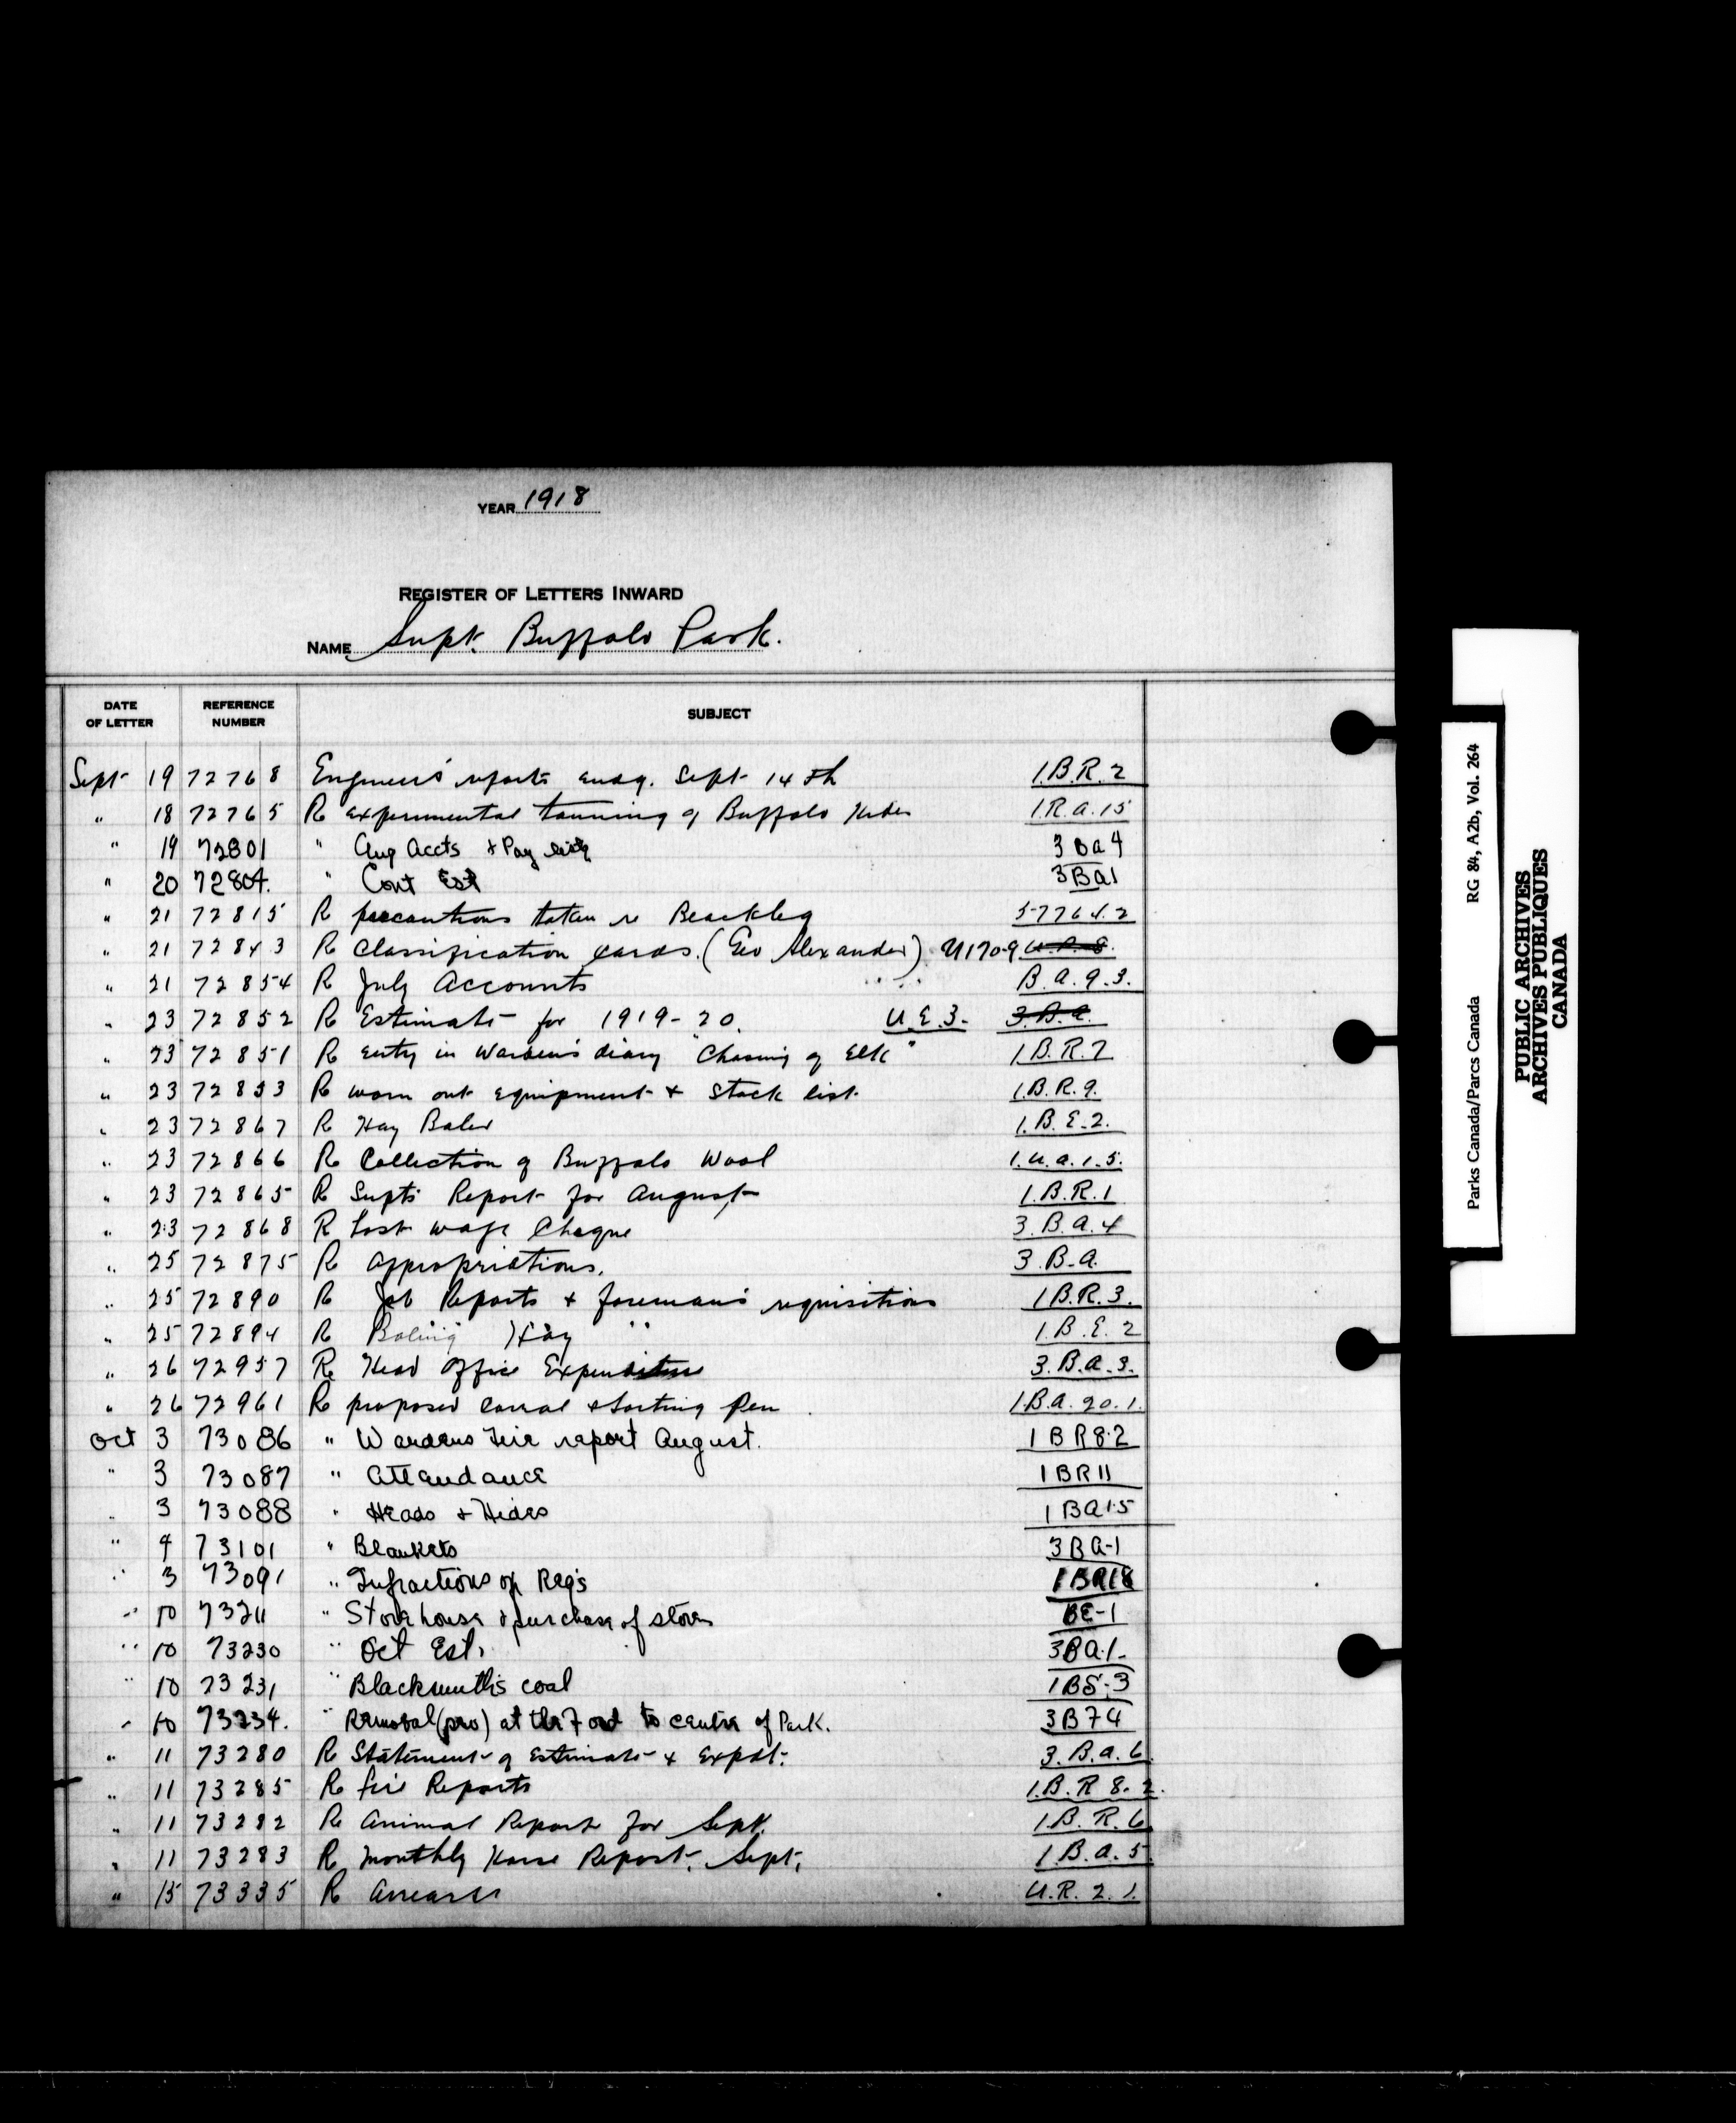 YEAR 1918
REGISTER OF LETTERS INWARD
NAME Supt. Buffalo Park.
DATE OF LETTER REFERENCE NUMBER SUBJECT
Sept 19 72768 Engineers' reports endg. Sept 14th 1.B.R.2
" 18 72765 R experimental tanning of Buffalo Hides 1.R.a.15
" 19 72801 " Aug Accts & Pay lists 3 Ba4
" 20 72804. " Cont Est 3Ba1
" 21 72815 R precautions taken re Blackleg 57764.2
" 21 72843 R Classification cards. (Geo Alexander) U170-9 U.R.8.
" 21 72854 R July Accounts B.a.9.3.
" 23 72852 R Estimate for 1919-20. U.E.3. 3.B.a.
" 23 72851 R entry in Warden's diary "Chasing of Elk" 1.B.R.7
" 23 72853 R worn out equipment & Stock list 1.B.R.9.
" 23 72867 R Hay Baler 1.B.E.2.
" 23 72866 R Collection of Buffalo Wool 1.U.a.1.5.
" 23 72865 R Supts Report for August 1.B.R.1
" 23 72868 R Lost wage Cheque 3.B.a.4
" 25 72875 R Appropriations. 3.B.a.
" 25 72890 R Job Reports & foreman's requisitions 1B.R.3.
" 25 72894 R Baling Hay 1.B.E.2
" 26 72957 R. Head Office Expenditure 3.B.a.3.
" 26 72961 R proposed corral & Sorting Pen 1.B.a.20.1.
Oct 3 73086 " Wardens Fire report August. 1 BR8.2
" 3 73087 " Attendance 1BR11
" 3 73088 " Heads & Hides 1 Ba15
" 4 73101 " Blankets 3Ba-1
" 3 73091 " Infractions of Reg's 1BR18
" 10 73211 " Storehouse & purchase of stores BE-1
" 10 73230 " Oct Est. 3Ba.1-
" 10 73231 " Blacksmith's coal 1BS-3
" 10 73234. " Removal (pro) at the to centre of Park. 3B74
" 11 73280 R Statement of Estimate & Expdt. 3.B.a.6.
" 11 73285 R fire Reports 1.B.R 8.2.
" 11 73282 R Animal Report for Sept. 1.B.R.6
" 11 73283 R Monthly Horse Report. Sept. 1.B.a.5.
" 15 73335 R Arrears U.R.2.1.
Parks Canada/Parcs Canada RG 84, A2b, Vol. 264
PUBLIC ARCHIVES
ARCHIVES PUBLIQUES
CANADA